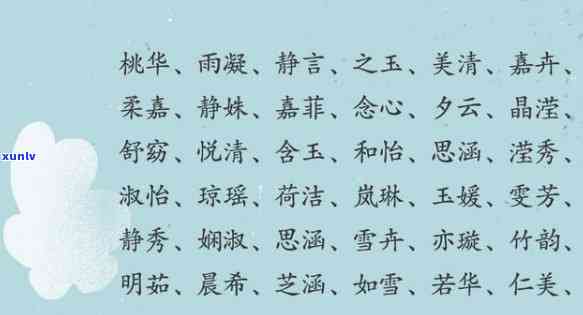 桃华、雨凝、静言、之玉、美清、嘉卉、
柔嘉、静姝、嘉菲、念心、夕云、晶滢、
xunlv
舒窈、悦清、含玉、和怡、思涵、滢秀、
淑怡、琼瑶、荷洁、岚琳、玉媛、雯芳、
静秀、娴淑、思涵、雪卉、亦璇、竹韵、
明茹、晨希、芝涵、如雪、若华、仁美、